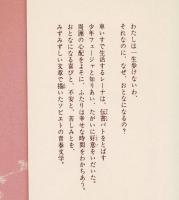 わたしは一生歩けないわ。
それなのに、なぜ、おとなになるの?
車いすで生活するレーナは、伝書バトをとばす
少年フェージャと知りあい、たがいに好意をいだいた。
周囲の心配をよそに、ふたりは幸せな時間をわかちあう。
おとなになる喜びと、不安と、苦しみとを、
みずみずしい文章で描いたソビエトの青春文学。